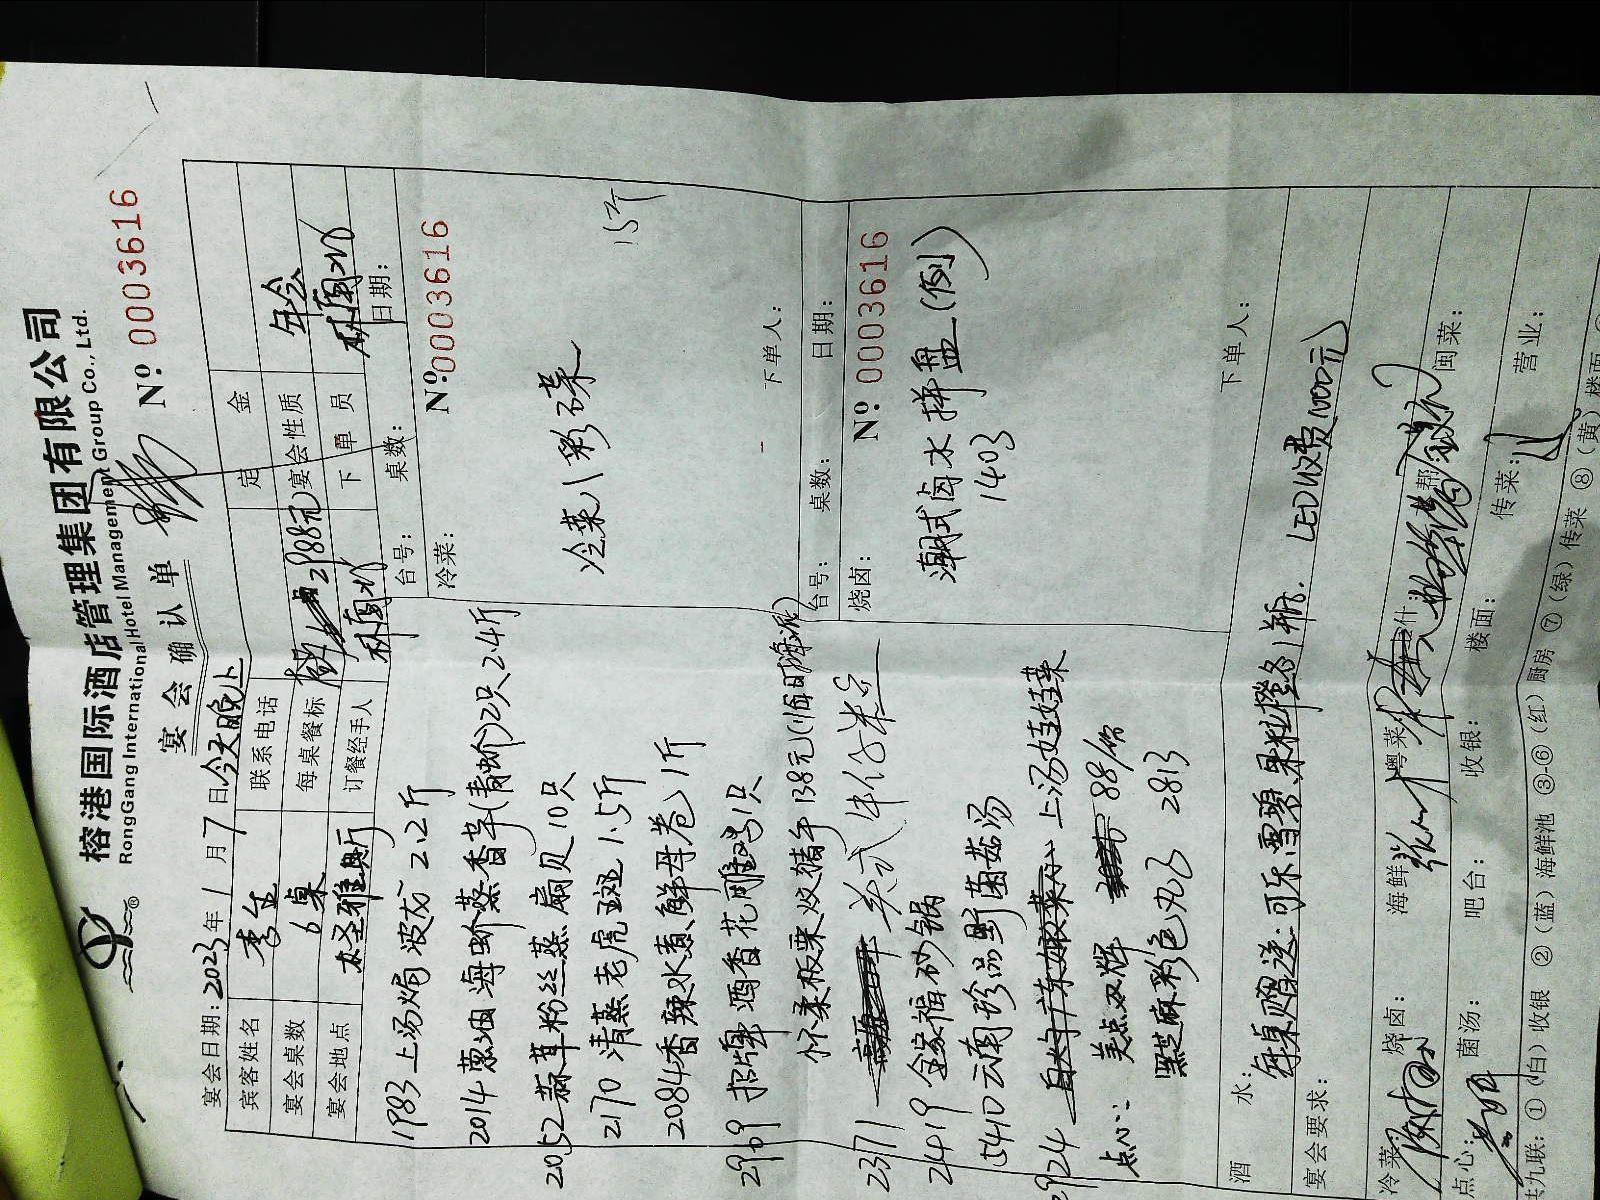 榕港国际酒店管理集团有限公司
RongGang International Hotel Management Group Co., Ltd.
宴会确认单
Nº 0003616
宴会日期：2023年1月7日今天晚上
宾客姓名 李生 联系电话 定金
宴会桌数 6桌 每桌餐标 2988元 宴会性质 年会
宴会地点 订餐经手人 下单员
台号： 桌数： 日期：
1983 上汤焗波龙 2.2斤
2014 葱油海蚧蒸香芋(青蚧)2只2.4斤
2052 蒜茸粉丝蒸扇贝10只
2170 清蒸老虎斑1.5斤
2084 香辣水煮鲜母卷1斤
2909 招牌酒香花雕鸡1只
怀柔板栗炆猪手138元(海派)
2371 美式牛仔粒
2419 金家福砂锅
5410 云南珍品野菌菇汤
2924 上汤娃娃菜
点心： 美点双辉 88/份
黑芝麻彩色丸子 2813
冷菜： Nº 0003616
冷菜八彩碟
15个
下单人：
台号： 桌数： 日期：
烧卤： Nº 0003616
潮式卤水拼盘(例)
1403
下单人：
酒水：
宴会要求： 每桌赠送：可乐雪碧果粒橙各1瓶. LED收费1000元
冷菜： 烧卤： 海鲜： 粤菜： 什： 帮： 闽菜：
点心： 菌汤： 吧台： 收银： 楼面： 传菜： 营业：
共九联：①(白)收银 ②(蓝)海鲜池 ③-⑥(红)厨房 ⑦(绿)传菜 ⑧(黄)楼面